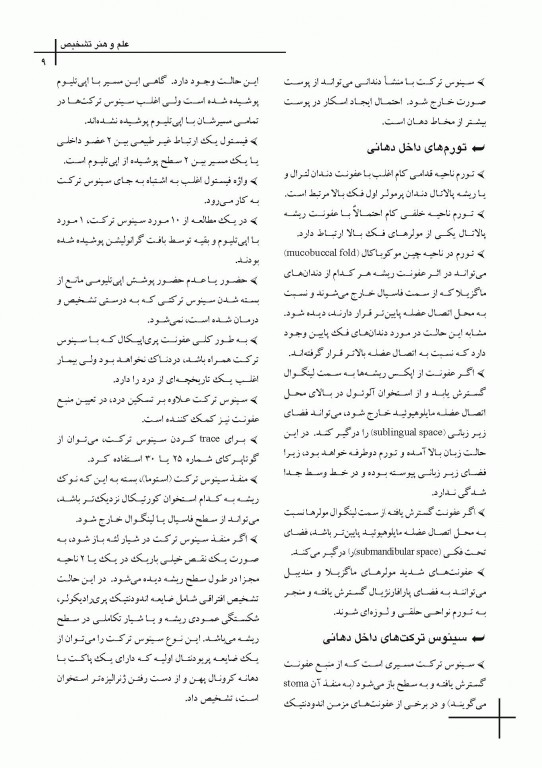 علم و هنر تشخیص
۹
➤ سینوس ترکت با منشأ دندانی می‌تواند از پوست
صورت خارج شود. احتمال ایجاد اسکار در پوست
بیشتر از مخاط دهان است.
تورم‌های داخل دهانی
➤ تورم ناحیه قدامی کام اغلب با عفونت دندان لترال و
یا ریشه پالاتال دندان پرمولر اول فک بالا مرتبط است.
➤ تورم ناحیه خلفی کام احتمالاً با عفونت ریشه
پالاتال یکی از مولرهای فک بالا ارتباط دارد.
➤ تورم در ناحیه چین موکوباکال (mucobuccal fold)
می‌تواند در اثر عفونت ریشه هر کدام از دندان‌های
ماگزیلا که از سمت فاسیال خارج می‌شوند و نسبت
به محل اتصال عضله پایین‌تر قرار دارند، دیده شود.
مشابه این حالت در مورد دندان‌های فک پایین وجود
دارد که نسبت به اتصال عضله بالاتر قرار گرفته‌اند.
➤ اگر عفونت از اپکس ریشه‌ها به سمت لینگوال
گسترش یابد و از استخوان آلوئول در بالای محل
اتصال عضله مایلوهیوئید خارج شود، می‌تواند فضای
زیر زبانی (sublingual space) را درگیر کند. در این
حالت زبان بالا آمده و تورم دوطرفه خواهد بود، زیرا
فضای زیر زبانی پیوسته بوده و در خط وسط جدا
شدگی ندارد.
➤ اگر عفونت گسترش یافته از سمت لینگوال مولرها نسبت
به محل اتصال عضله مایلوهیوئید پایین‌تر باشد، فضای
تحت فکی (submandibular space)را درگیر می‌کند.
➤ عفونت‌های شدید مولرهای ماگزیلا و مندیبل
می‌تواننـد به فضای پارافارنژیال گسترش یافته و منجر
به تورم نواحی حلقی و لوزه‌ای شوند.
سینوس ترکت‌های داخل دهانی
➤ سینوس ترکت مسیری است که از منبع عفونت
گسترش یافته و به سطح باز می‌شود (به منفذ آن stoma
می‌گویند) و در برخی از عفونت‌های مزمن اندودنتیک
این حالت وجود دارد. گاهی این مسیر با اپی‌تلیوم
پوشیده شده است ولی اغلب سینوس ترکت‌ها در
تمامی مسیرشان با اپی‌تلیوم پوشیده نشده‌اند.
➤ فیستول یک ارتباط غیر طبیعی بین ۲ عضو داخلی
یا یک مسیر بین ۲ سطح پوشیده از اپی‌تلیوم است.
➤ واژه فیستول اغلب به اشتباه به جای سینوس ترکت
به کار می‌رود.
➤ در یک مطالعه از ۱۰ مورد سینوس ترکت، ۱ مورد
با اپی‌تلیوم و بقیه توسط بافت گرانولیشن پوشیده شده
بودند.
➤ حضور یا عدم حضور پوشش اپی‌تلیومی مانع از
بسته شدن سینوس ترکتی که به درستی تشخیص و
درمان شده است، نمی‌شود.
➤ به طور کلی عفونت پری‌اپیکال که با سینوس
ترکت همراه باشد، دردناک نخواهد بود ولی بیمار
اغلب یک تاریخچه‌ای از درد را دارد.
➤ سینوس ترکت علاوه بر تسکین درد، در تعیین منبع
عفونت نیز کمک کننده است.
➤ برای trace کردن سینوس ترکت، می‌توان از
گوتاپرکای شماره ۲۵ یا ۳۰ استفاده کرد.
➤ منفذ سینوس ترکت (استوما)، بسته به این که نوک
ریشه به کدام استخوان کورتیکال نزدیک‌تر باشد،
می‌تواند از سطح فاسیال یا لینگوال خارج شود.
➤ اگر منفذ سینوس ترکت در شیار لثه باز شود، به
صورت یک نقص خیلی باریک در یک یا ۲ ناحیه
مجزا در طول سطح ریشه دیده می‌شود. در این حالت
تشخیص افتراقی شامل ضایعه اندودنتیک پری‌رادیکولر،
شکستگی عمودی ریشه و یا شیار تکاملی در سطح
ریشه می‌باشد. این نوع سینوس ترکت را می‌توان از
یک ضایعه پریودنتال اولیه که دارای یک پاکت با
دهانه کرونال پهن و از دست رفتن ژنرالیزه‌تر استخوان
است، تشخیص داد.